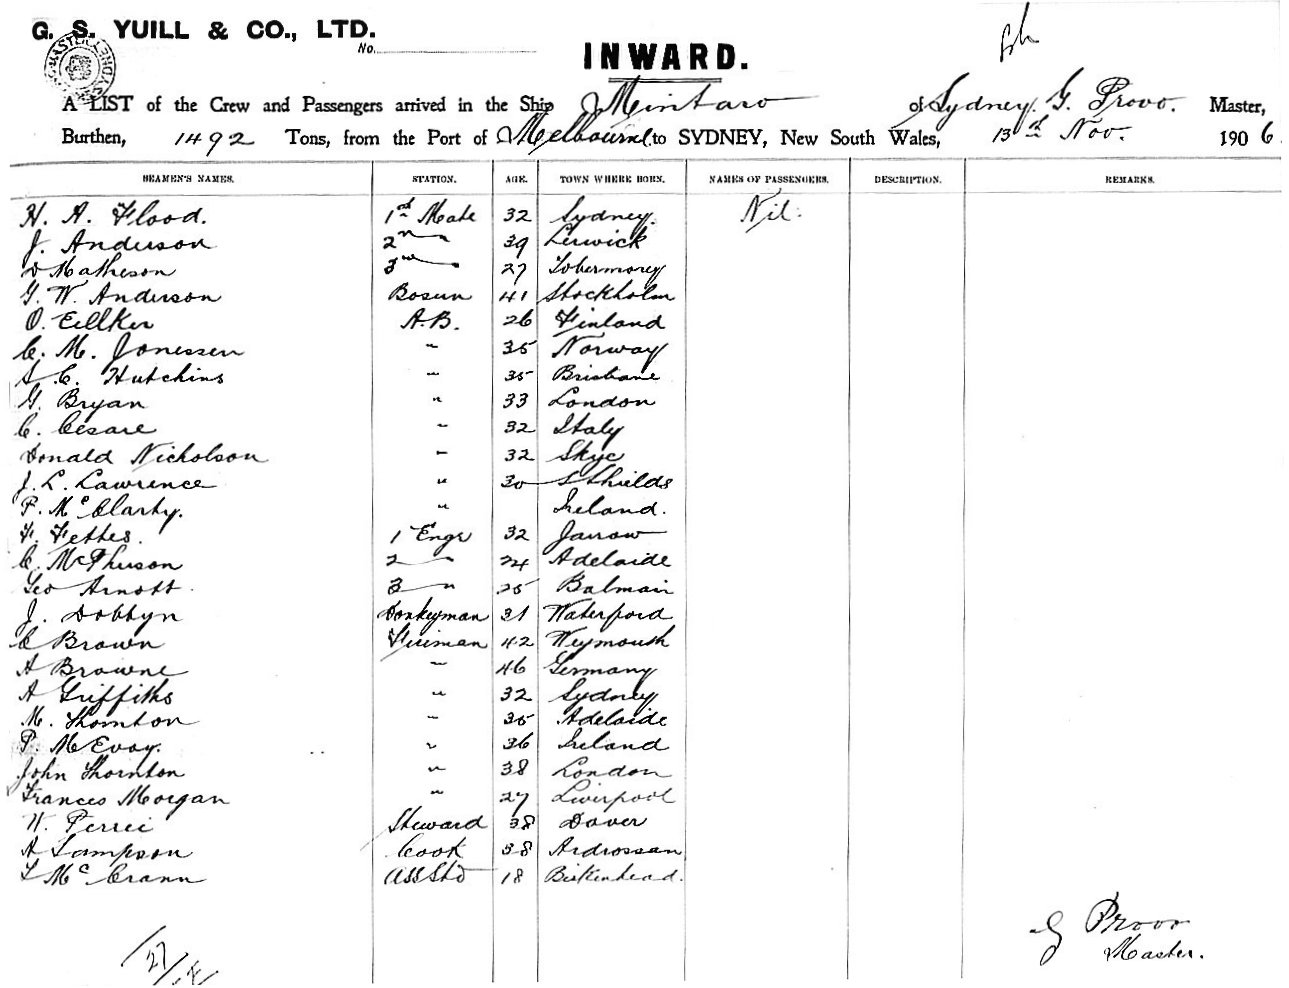 G. S. YUILL & CO., LTD.
No.
INWARD.
A LIST of the Crew and Passengers arrived in the Ship Mintaro of Sydney, G. Provo. Master,
Burthen, 1492 Tons, from the Port of Melbourne to SYDNEY, New South Wales, 13th Nov. 1906.
SEAMEN'S NAMES. STATION. AGE. TOWN WHERE BORN. NAMES OF PASSENGERS. DESCRIPTION. REMARKS.
H. A. Flood. 1st Mate 32 Sydney. Nil.
J. Anderson 2nd " 39 Lerwick
D Matheson 3rd " 27 Tobermorey
G. W. Anderson Bosun 41 Stockholm
O. Eellker A.B. 26 Finland
C. M. Jonessen " 35 Norway
S C. Hutchins " 35 Brisbane
G. Bryan " 33 London
C. Cesare " 32 Italy
Donald Nicholson " 32 Skye
J. L. Lawrence " 30 S Shields
P. McClarty. " Ireland.
F. Fettes. 1st Engr 32 Jarrow
C. McPherson 2 " 24 Adelaide
Geo Arnott. 3 " 25 Balmain
J. Dobbyn Donkeyman 31 Waterford
C Brown Fireman 42 Weymouth
A Browne " 46 Germany
A Griffiths " 32 Sydney
M. Thornton " 35 Adelaide
P. McEvoy. " 36 Ireland
John Thornton " 38 London
Frances Morgan " 27 Liverpool
W. Perrei Steward 38 Dover
A Sampson Cook 38 Ardrossan
T McCrann Ass Std 18 Birkenhead.
G Provo
Master.